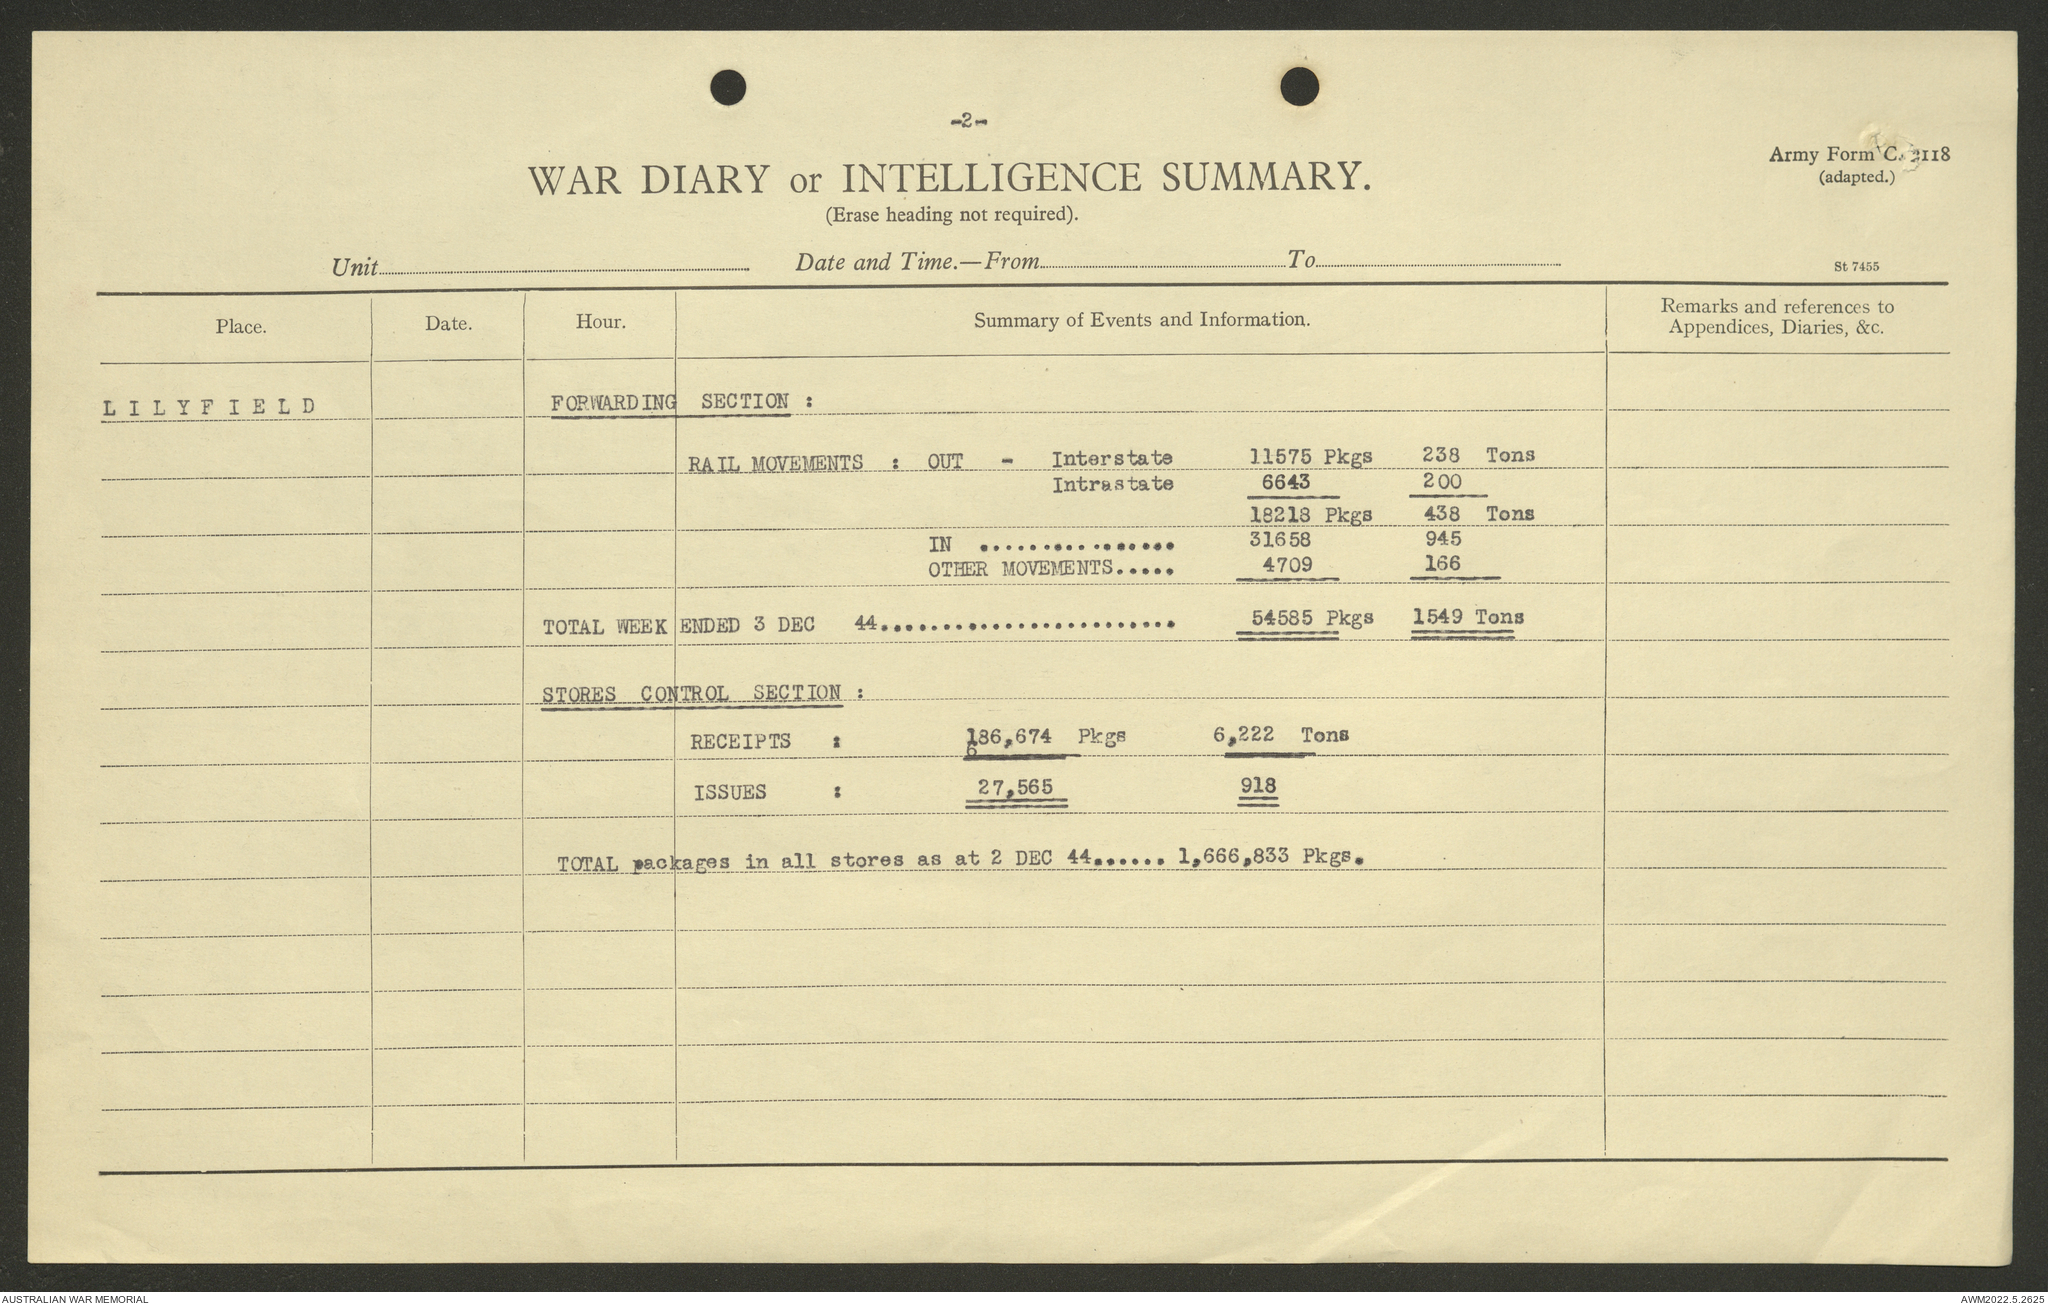 -2-
Army Form C. 2118
(adapted.)
WAR DIARY or INTELLIGENCE SUMMARY.
(Erase heading not required).
Unit Date and Time.—From To
St 7455
Place. Date. Hour. Summary of Events and Information. Remarks and references to
Appendices, Diaries, &c.
LILYFIELD FORWARDING SECTION :
RAIL MOVEMENTS : OUT - Interstate 11575 Pkgs 238 Tons
Intrastate 6643 200
18218 Pkgs 438 Tons
IN ................ 31658 945
OTHER MOVEMENTS..... 4709 166
TOTAL WEEK ENDED 3 DEC 44........................ 54585 Pkgs 1549 Tons
STORES CONTROL SECTION :
RECEIPTS : 186,674 Pkgs 6,222 Tons
6
ISSUES : 27,565 918
TOTAL packages in all stores as at 2 DEC 44...... 1,666,833 Pkgs.
AUSTRALIAN WAR MEMORIAL
AWM2022.5.2625